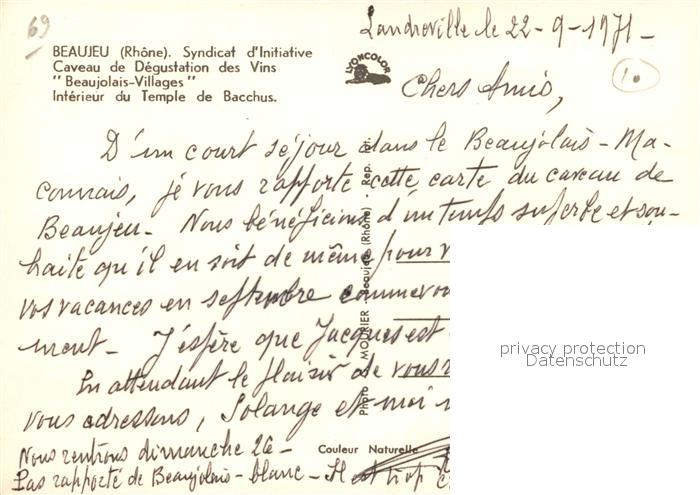 69
Landreville le 22-9-1971-
BEAUJEU (Rhône). Syndicat d'Initiative
Caveau de Dégustation des Vins
"Beaujolais-Villages"
Intérieur du Temple de Bacchus.
LYONCOLOR
10
Chers Amis,
D'un court séjour dans le Beaujolais-Ma-
connais, je vous rapporte cette carte du caveau de
Beaujeu- Nous bénéficions d'un temps superbe et sou-
haite qu'il en soit de même pour
vos vacances en septembre comme
ment- J'espère que Jacques est
En attendant le plaisir de vous
vous adressons, Solange et moi
Nous rentrons dimanche 26-
Pas rapporté de Beaujolais-blanc- Il est trop
Couleur Naturelle
Photo MOURIER - Beaujeu (Rhône) - Rep. int.
privacy protection
Datenschutz